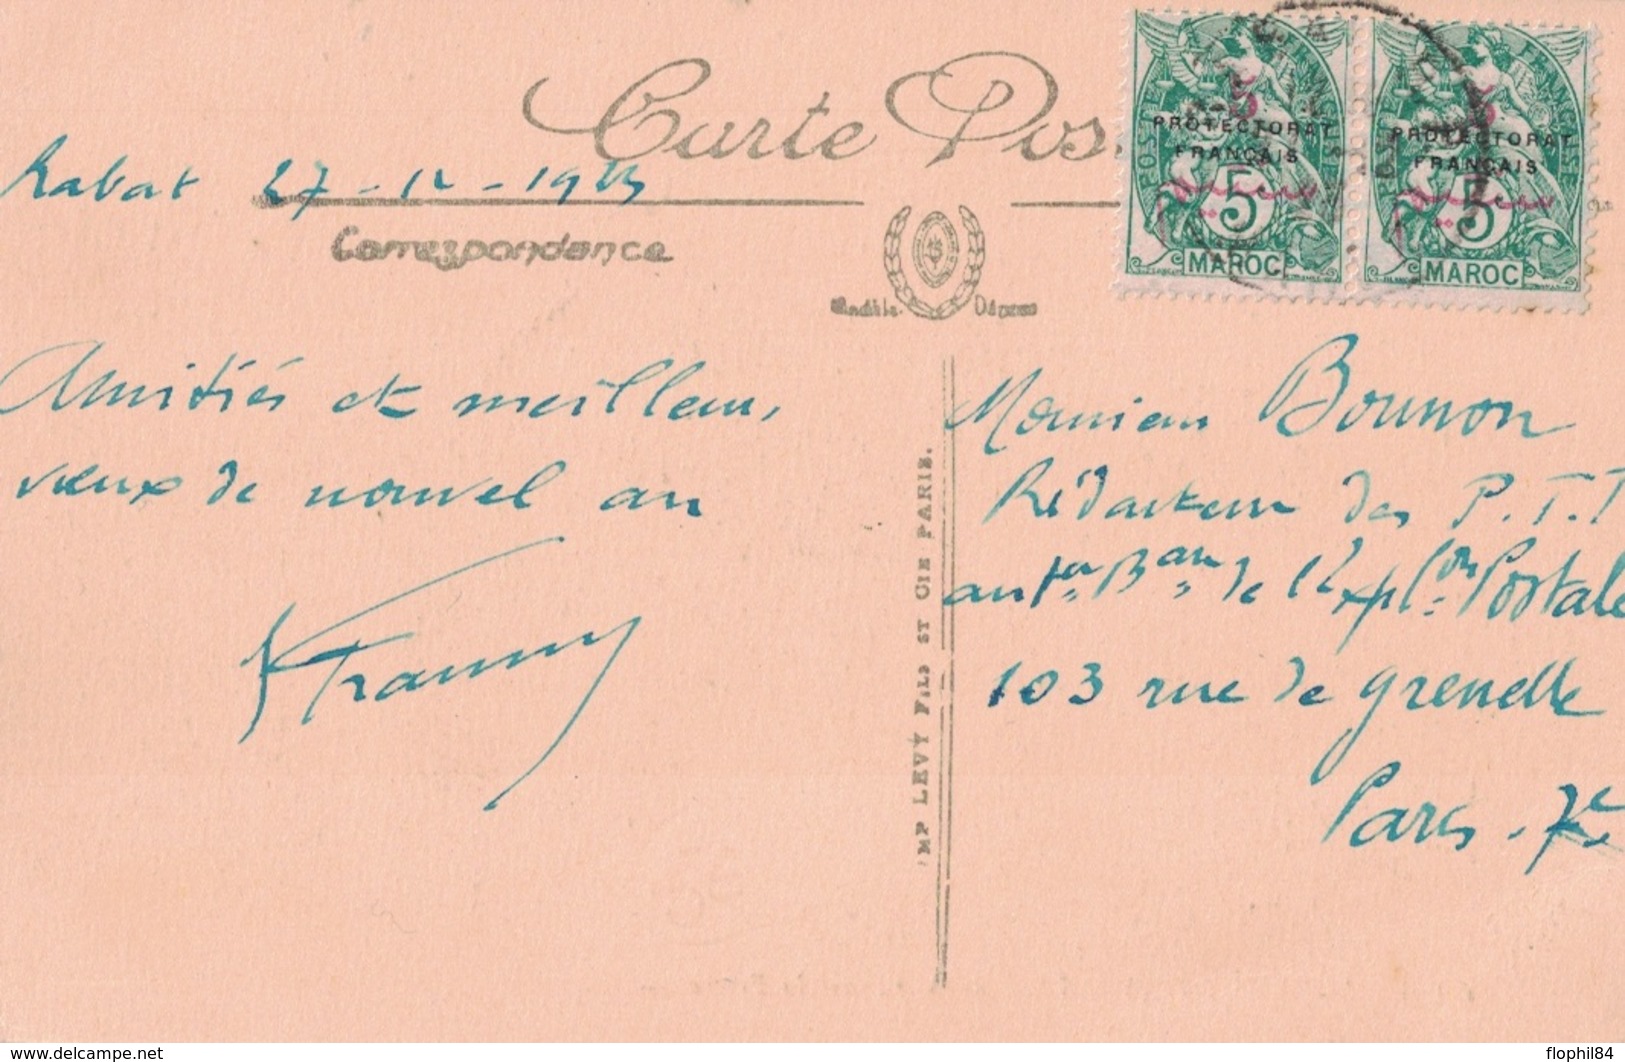 Carte Pos
Rabat 27-12-19
Correspondance
Modèle Déposé
5
PROTECTORAT
FRANÇAIS
5
MAROC
5
PROTECTORAT
FRANÇAIS
5
MAROC
Amitiés et meilleurs
vœux de nouvel an
IMP LEVY FILS ET CIE PARIS.
Monsieur Bounon
Rédacteur des P.T.T
Bau de l'Expl.on Postale
103 rue de Grenelle
Paris - 7e
delcampe.net
flophil84